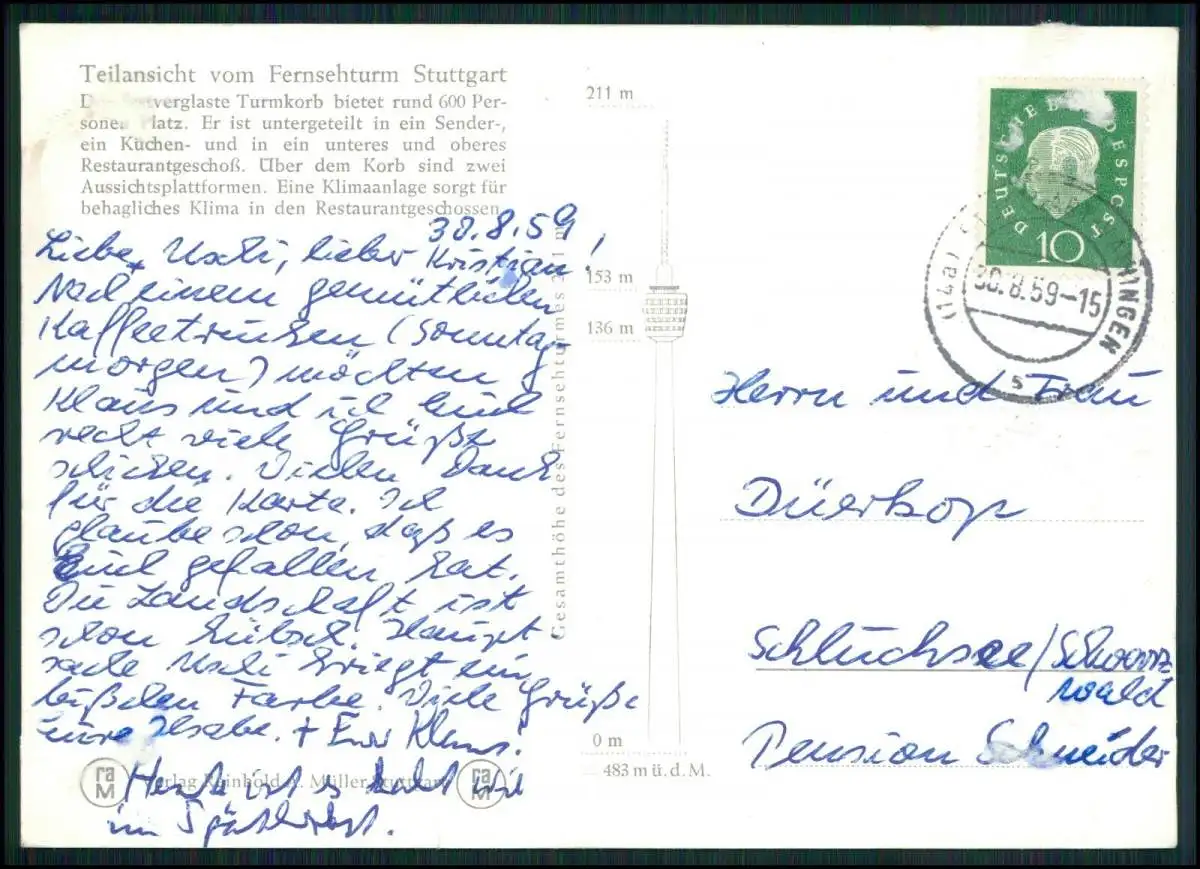 Teilansicht vom Fernsehturm Stuttgart
verglaste Turmkorb bietet rund 600 Per-
sonen Platz. Er ist untergeteilt in ein Sender-,
ein Küchen- und in ein unteres und oberes
Restaurantgeschoß. Über dem Korb sind zwei
Aussichtsplattformen. Eine Klimaanlage sorgt für
behagliches Klima in den Restaurantgeschossen.
30.8.59,
Liebe Uschi, lieber Kristian!
Nach einem gemütlichen
Kaffeetrinken (Sonntag-
morgen) möchten
Klaus und ich Euch
recht viele Grüße
schicken. Vielen Dank
für die Karte. Ich
glaube schon, daß es
Euch gefallen hat.
Die Landschaft ist
schon hübsch. Haupt
sache Uschi kriegt ein
bißchen Farbe. Viele Grüße
Eure Ilsabe. + Euer Klaus!
Heute ist es kalt wie
im Spätherbst.
raM Verlag Reinhold A. Müller Stuttgart raM
211 m
153 m
136 m
0 m
483 m ü.d.M.
Gesamthöhe des Fernsehturmes 211 m
DEUTSCHE BUNDESPOST
10
(14a)
30.8.59-15
INGEN
Herrn und Frau
Düerkop
Schluchsee/Schwarz
wald
Pension Schneider